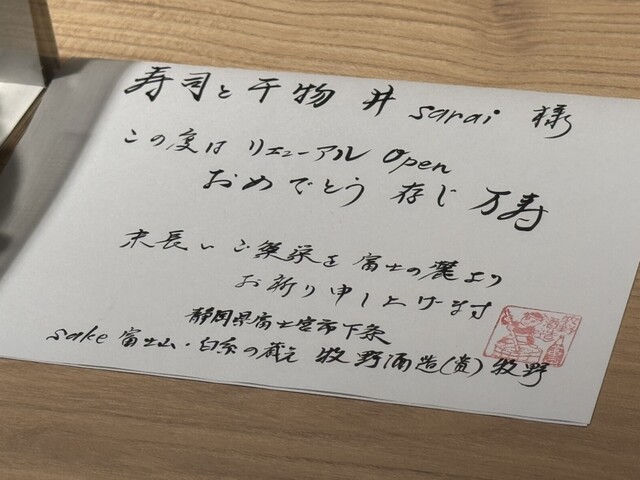 寿司と干物 井 sarai 様
この度は リニューアル Open
おめでとう 存じ 万寿
末長いご繁栄を富士の麓より
お祈り申し上げます
静岡県富士宮市下条
sake 富士山・白糸の蔵元 牧野酒造(資) 牧野